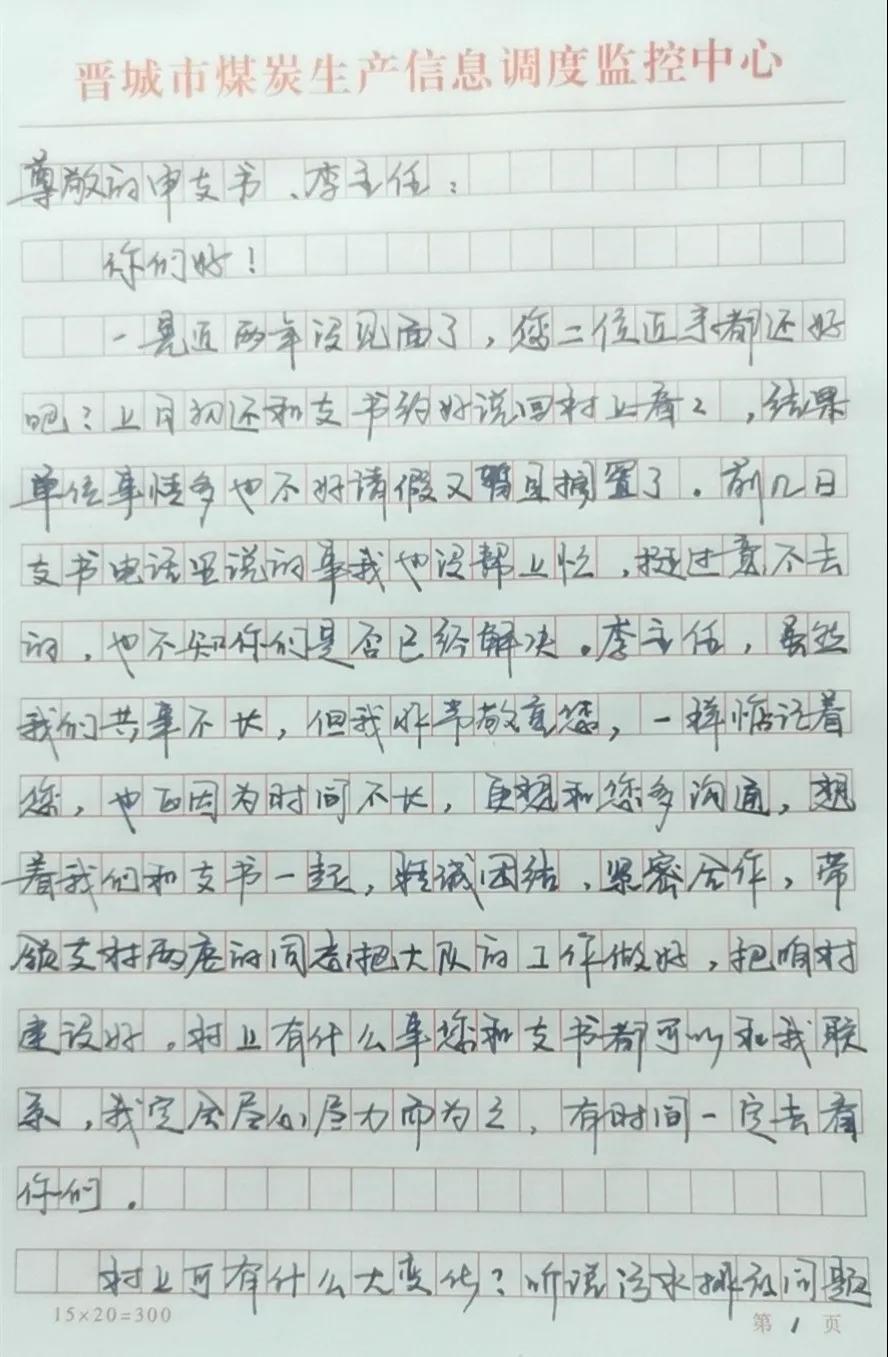 晋城市煤炭生产信息调度监控中心
尊敬的申支书、李主任：
你们好！
一晃近两年没见面了，您二位近来都还好
吧？上月初还和支书约好说回村上看看，结果
单位事情多也不好请假又暂且搁置了。前几日
支书电话里说的事我也没帮上忙，挺过意不去
的，也不知你们是否已经解决。李主任，虽然
我们共事不长，但我非常敬重您，一样惦记着
您，也正因为时间不长，更想和您多沟通，想
着我们和支书一起，精诚团结，紧密合作，带
领支村两委的同志把大队的工作做好，把咱村
建设好。村上有什么事您和支书都可以和我联
系，我定会尽心尽力而为之，有时间一定去看
你们。
村上可有什么大变化？听说污水排放问题
15×20=300
第 1 页